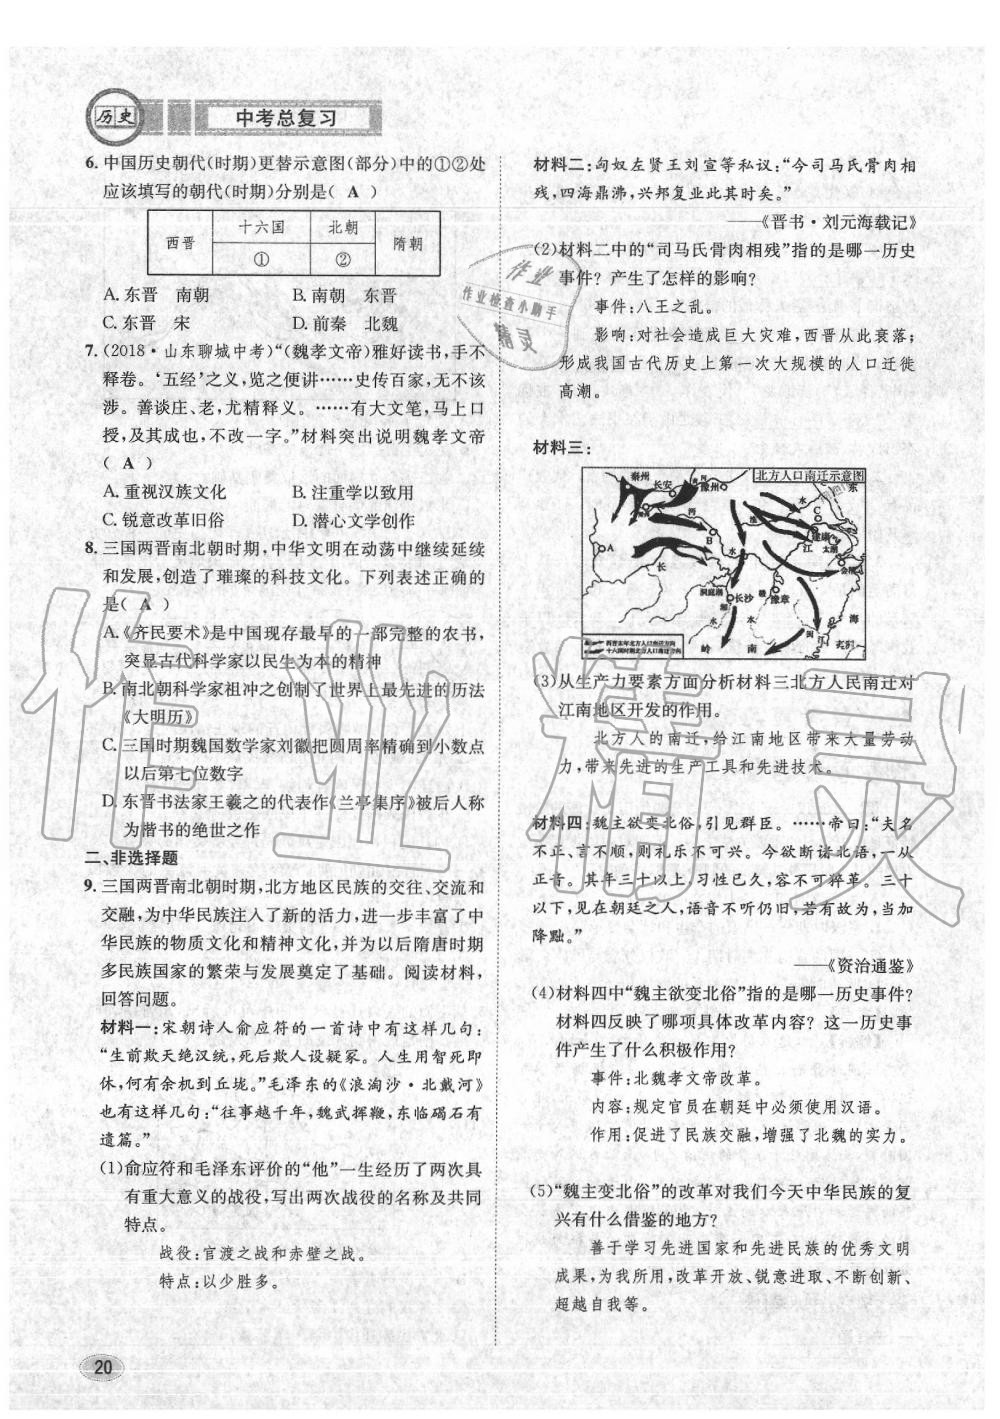 历史
中考总复习
6. 中国历史朝代(时期)更替示意图(部分)中的①②处
应该填写的朝代(时期)分别是( A )
西晋 十六国 北朝 隋朝
① ②
A. 东晋 南朝 B. 南朝 东晋
C. 东晋 宋 D. 前秦 北魏
7. (2018·山东聊城中考)“(魏孝文帝)雅好读书,手不
释卷。‘五经’之义,览之便讲……史传百家,无不该
涉。善谈庄、老,尤精释义。……有大文笔,马上口
授,及其成也,不改一字。”材料突出说明魏孝文帝
( A )
A. 重视汉族文化 B. 注重学以致用
C. 锐意改革旧俗 D. 潜心文学创作
8. 三国两晋南北朝时期,中华文明在动荡中继续延续
和发展,创造了璀璨的科技文化。下列表述正确的
是( A )
A. 《齐民要术》是中国现存最早的一部完整的农书,
突显古代科学家以民生为本的精神
B. 南北朝科学家祖冲之创制了世界上最先进的历法
《大明历》
C. 三国时期魏国数学家刘徽把圆周率精确到小数点
以后第七位数字
D. 东晋书法家王羲之的代表作《兰亭集序》被后人称
为楷书的绝世之作
二、非选择题
9. 三国两晋南北朝时期,北方地区民族的交往、交流和
交融,为中华民族注入了新的活力,进一步丰富了中
华民族的物质文化和精神文化,并为以后隋唐时期
多民族国家的繁荣与发展奠定了基础。阅读材料,
回答问题。
材料一:宋朝诗人俞应符的一首诗中有这样几句:
“生前欺天绝汉统,死后欺人设疑冢。人生用智死即
休,何有余机到丘垅。”毛泽东的《浪淘沙·北戴河》
也有这样几句:“往事越千年,魏武挥鞭,东临碣石有
遗篇。”
(1)俞应符和毛泽东评价的“他”一生经历了两次具
有重大意义的战役,写出两次战役的名称及共同
特点。
战役:官渡之战和赤壁之战。
特点:以少胜多。
20
材料二:匈奴左贤王刘宣等私议:“今司马氏骨肉相
残,四海鼎沸,兴邦复业此其时矣。”
——《晋书·刘元海载记》
(2)材料二中的“司马氏骨肉相残”指的是哪一历史
事件?产生了怎样的影响?
事件:八王之乱。
影响:对社会造成巨大灾难,西晋从此衰落;
形成我国古代历史上第一次大规模的人口迁徙
高潮。
材料三:
北方人口南迁示意图
秦州
长安
豫州
黄河
东
水
淮
C
建康
沔
B
江
太湖
会稽
A
水
长
洞庭湖
长沙
赣
豫章
湘
水
水
闽
江
海
岭
南
夷洲
西晋末年北方人口南迁方向
十六国时期北方人口南迁方向
(3)从生产力要素方面分析材料三北方人民南迁对
江南地区开发的作用。
北方人的南迁,给江南地区带来大量劳动
力,带来先进的生产工具和先进技术。
材料四:魏主欲变北俗,引见群臣。……帝曰:“夫名
不正、言不顺,则礼乐不可兴。今欲断诸北语,一从
正音。其年三十以上,习性已久,容不可猝革。三十
以下,见在朝廷之人,语音不听仍旧,若有故为,当加
降黜。”
——《资治通鉴》
(4)材料四中“魏主欲变北俗”指的是哪一历史事件?
材料四反映了哪项具体改革内容?这一历史事
件产生了什么积极作用?
事件:北魏孝文帝改革。
内容:规定官员在朝廷中必须使用汉语。
作用:促进了民族交融,增强了北魏的实力。
(5)“魏主变北俗”的改革对我们今天中华民族的复
兴有什么借鉴的地方?
善于学习先进国家和先进民族的优秀文明
成果,为我所用,改革开放、锐意进取、不断创新、
超越自我等。
作业
作业检查小助手
精灵
作业精灵